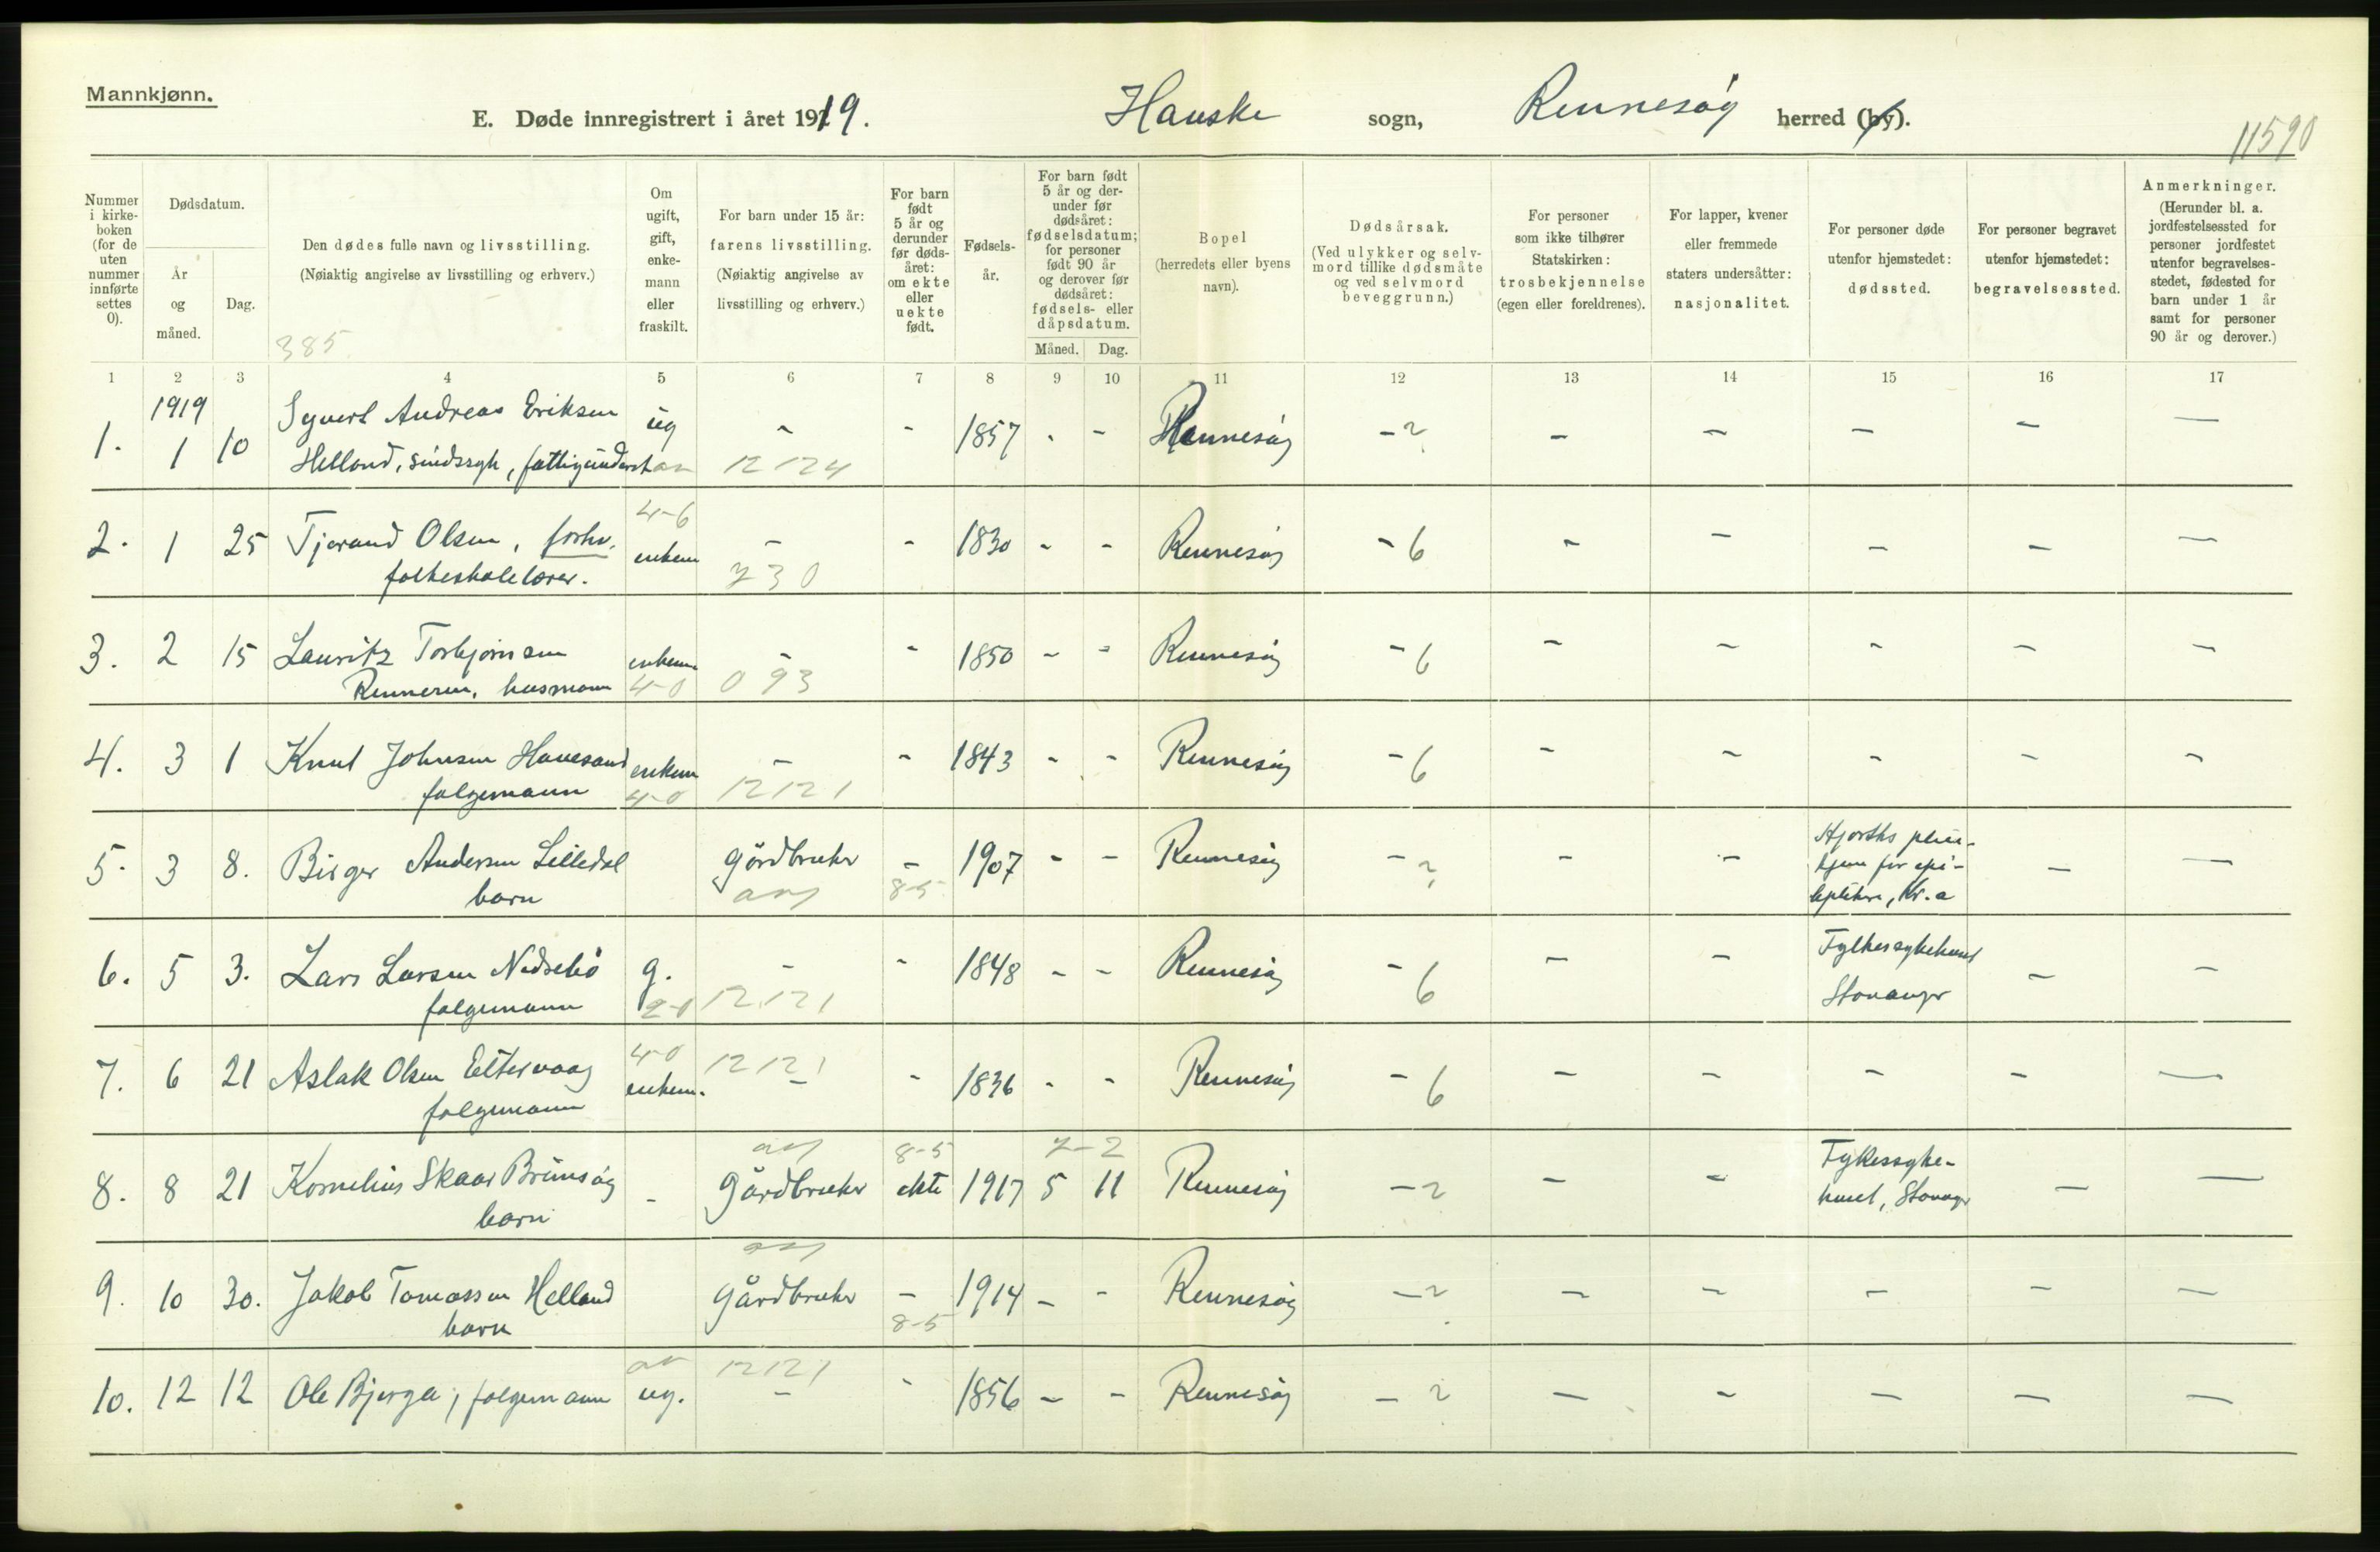 Mannkjønn.
E. Døde innregistrert i året 1919.
Hauske sogn, Rennesøy herred (by).
11590
Nummer i kirkeboken (for de uten nummer innførte settes 0).
Dødsdatum.
År og måned.
Dag.
Den dødes fulle navn og livsstilling.
(Nøiaktig angivelse av livsstilling og erhverv.)
385
Om ugift, gift, enkemann eller fraskilt.
For barn under 15 år:
farens livsstilling.
(Nøiaktig angivelse av livsstilling og erhverv.)
For barn født 5 år og derunder før dødsåret: om ekte eller uekte født.
Fødselsår.
For barn født 5 år og derunder før dødsåret: fødselsdatum; for personer født 90 år og derover før dødsåret: fødsels- eller dåpsdatum.
Måned.
Dag.
Bopel
(herredets eller byens navn).
Dødsårsak.
(Ved ulykker og selvmord tillike dødsmåte og ved selvmord beveggrunn.)
For personer som ikke tilhører Statskirken: trosbekjennelse (egen eller foreldrenes).
For lapper, kvener eller fremmede staters undersåtter: nasjonalitet.
For personer døde utenfor hjemstedet: dødssted.
For personer begravet utenfor hjemstedet: begravelsessted.
Anmerkninger.
(Herunder bl. a. jordfestelsessted for personer jordfestet utenfor begravelsesstedet, fødested for barn under 1 år samt for personer 90 år og derover.)
1 2 3 4 5 6 7 8 9 10 11 12 13 14 15 16 17
1919
1. 1 10 Syvert Andreas Eriksen ug - - 1857 - - Rennesøy - ? - - - - -
Helland, sindssyk, fattigunderst 12 124
4-6
2. 1 25 Tjerand Olsen, forhv. enkem - - 1830 - - Rennesøy - 6 - - - - -
folkeskolelærer. 730
3. 2 15 Lauritz Torbjørnsen enkem - - 1850 - - Rennesøy - 6 - - - - -
Renneren, husmann 4-0 093
4. 3 1 Knut Johnsen Hanesand enkem - - 1843 - - Rennesøy - 6 - - - - -
følgemann 4-0 12 121
5. 3 8. Birger Andersen Lilledal gårdbruker - 1907 - - Rennesøy - ? - - Hjorths pleiehjem for epileptikere, Kr.a - -
barn 8-5
6. 5 3. Lars Larsen Nedrebö g. - - 1848 - - Rennesøy - 6 - - Fylkessykehuset Stavanger - -
følgemann 2-0 12 121
4-0 12 121
7. 6 21 Aslak Olsen Eltervaag enkem. - - 1836 - - Rennesøy - 6 - - - - -
følgemann
8-5 7-2
8. 8 21 Kornelius Skaar Brimsøy - Gårdbruker ekte 1917 5 11 Rennesøy - ? - - Fylkessykehuset, Stavanger - -
barn
9. 10 30. Jakob Tomassen Helland gårdbruker - 1914 - - Rennesøy - ? - - - - -
barn 8-5
12 121
10. 12 12 Ole Bjerga, følgemann ug. - - 1856 - - Rennesøy - ? - - - - -